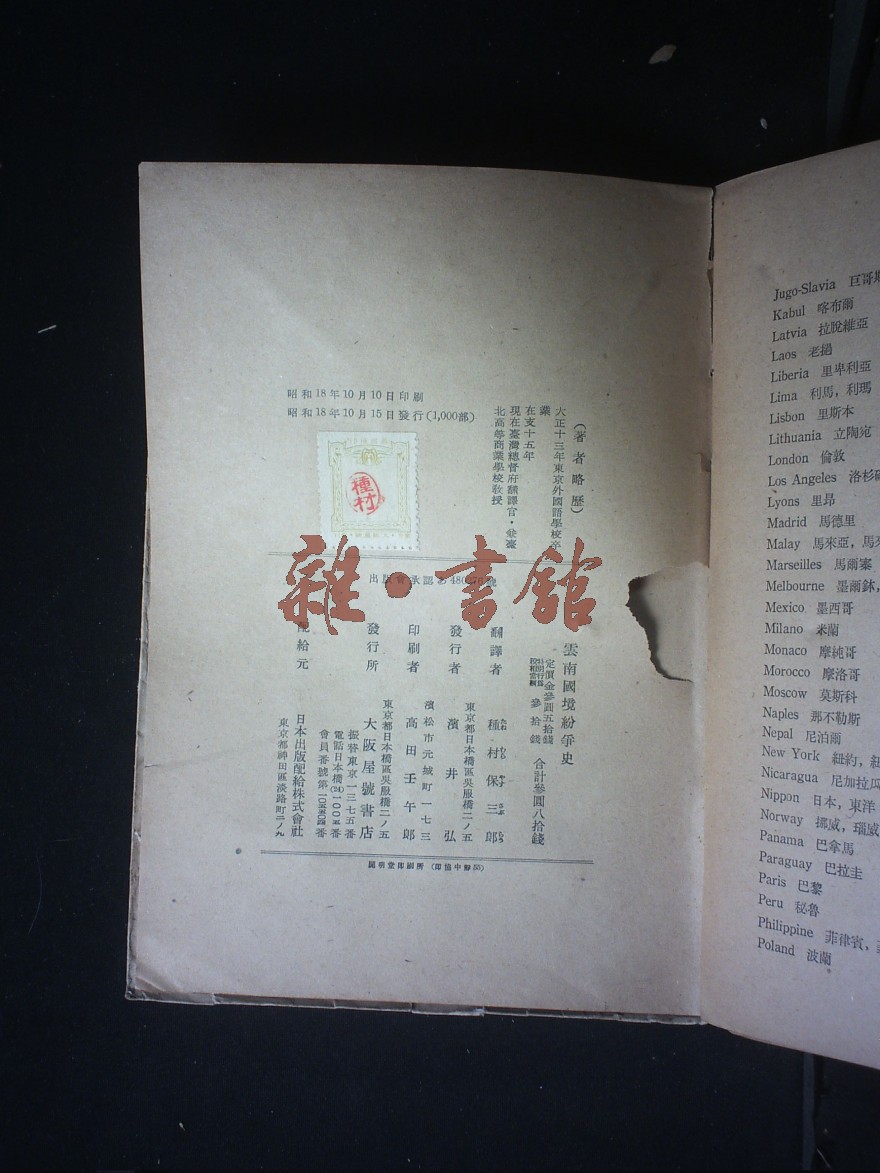 昭和18年10月10日印刷
昭和18年10月15日發行(1,000部)
(著者略歷)
大正十三年東京外國語學校卒
業
在支十五年
現在臺灣總督府飜譯官・兼臺
北高等商業學校敎授
種村
雜・書館
出版會承認
雲南國境紛爭史
定價金參圓五拾錢
特別行爲稅相當額
參拾錢
合計參圓八拾錢
飜譯者
種村保三郎
東京都日本橋區吳服橋二ノ五
發行者
濱井弘
濱松市元城町一七三
印刷者
高田壬午郎
東京都日本橋區吳服橋二ノ五
發行所
大阪屋號書店
振替東京一三七五番
電話日本橋(24)一〇〇五番
配給元
日本出版配給株式會社
東京都神田區淡路町二ノ九
Jugo-Slavia 巨哥
Kabul 喀布爾
Latvia 拉脫維亞
Laos 老撾
Liberia 里卑利亞
Lima 利馬, 利瑪
Lisbon 里斯本
Lithuania 立陶宛
London 倫敦
Los Angeles 洛杉
Lyons 里昂
Madrid 馬德里
Malay 馬來亞, 馬
Marseilles 馬爾塞
Melbourne 墨爾鉢,
Mexico 墨西哥
Milano 米蘭
Monaco 摩純哥
Morocco 摩洛哥
Moscow 莫斯科
Naples 那不勒斯
Nepal 尼泊爾
New York 紐約, 紐
Nicaragua 尼加拉瓜
Nippon 日本, 東洋
Norway 挪威, 瑞威
Panama 巴拿馬
Paraguay 巴拉圭
Paris 巴黎
Peru 秘魯
Philippine 菲律賓,
Poland 波蘭